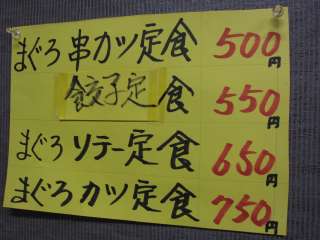 まぐろ 串カツ定食 500円
餃子定食 550円
まぐろ ソテー定食 650円
まぐろ カツ定食 750円